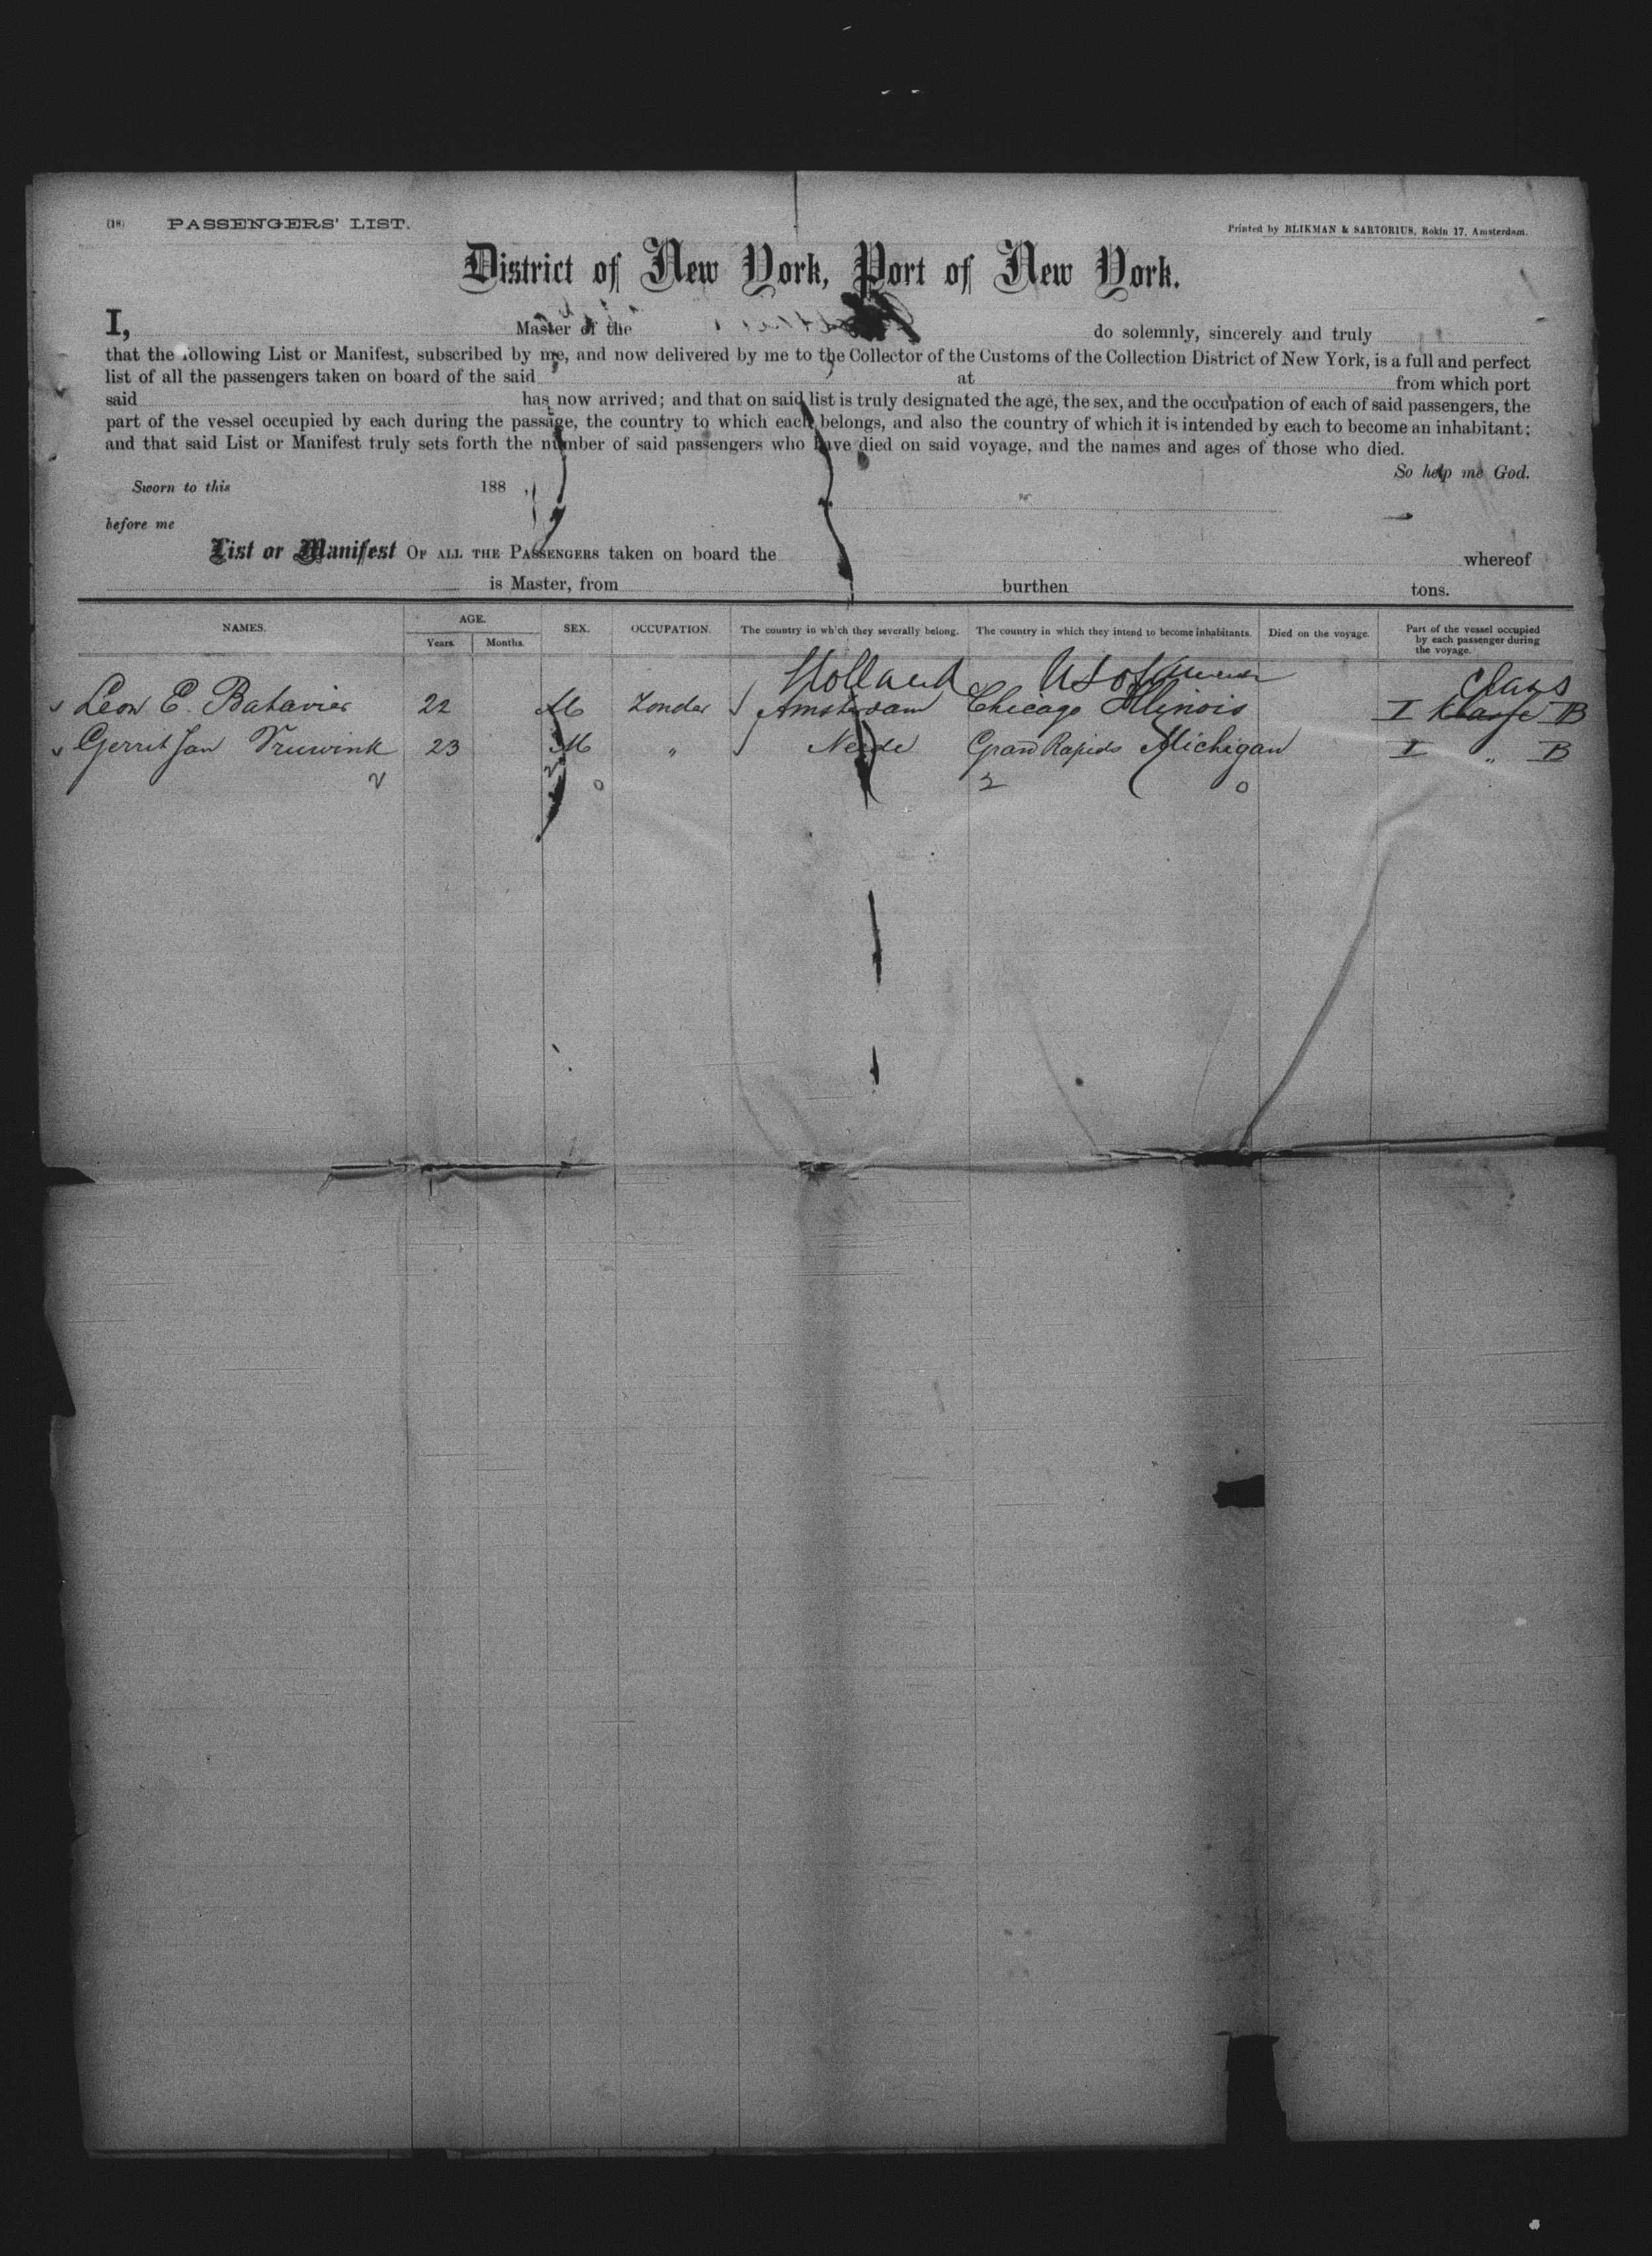 (18) PASSENGERS' LIST. Printed by BLIKMAN & SARTORIUS, Rokin 17, Amsterdam.
District of New York, Port of New York.
I, Master of the do solemnly, sincerely and truly
that the following List or Manifest, subscribed by me, and now delivered by me to the Collector of the Customs of the Collection District of New York, is a full and perfect
list of all the passengers taken on board of the said at from which port
said has now arrived; and that on said list is truly designated the age, the sex, and the occupation of each of said passengers, the
part of the vessel occupied by each during the passage, the country to which each belongs, and also the country of which it is intended by each to become an inhabitant;
and that said List or Manifest truly sets forth the number of said passengers who have died on said voyage, and the names and ages of those who died.
So help me God.
Sworn to this 188
before me
List or Manifest OF ALL THE PASSENGERS taken on board the whereof
is Master, from burthen tons.
NAMES. AGE. Years. Months. SEX. OCCUPATION. The country in which they severally belong. The country in which they intend to become inhabitants. Died on the voyage. Part of the vessel occupied by each passenger during the voyage.
Holland U S of America Class
Leon E. Batavier 22 M Zonder Amsterdam Chicago Illinois I Klasse B
Gerrit Jan Vruwink 23 M " Neede Grand Rapids Michigan I " B
2 2 0 2 0